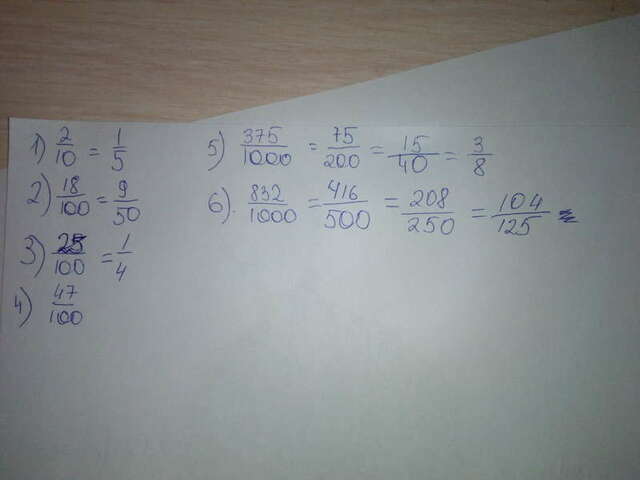 1) 2/10 = 1/5
2) 18/100 = 9/50
3) 25/100 = 1/4
4) 47/100
5) 375/1000 = 75/200 = 15/40 = 3/8
6). 832/1000 = 416/500 = 208/250 = 104/125